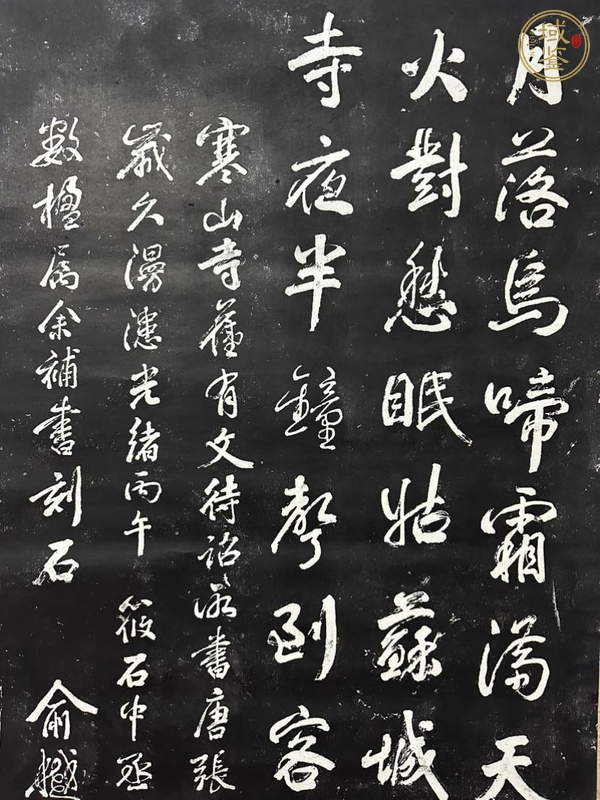 月落烏啼霜滿天
火對愁眠姑蘇城
寺夜半鐘聲到客
寒山寺舊有文待詔所書唐張
歲久漫漶光緒丙午 筱石中丞
數楹屬余補書刻石 俞樾
域鉴